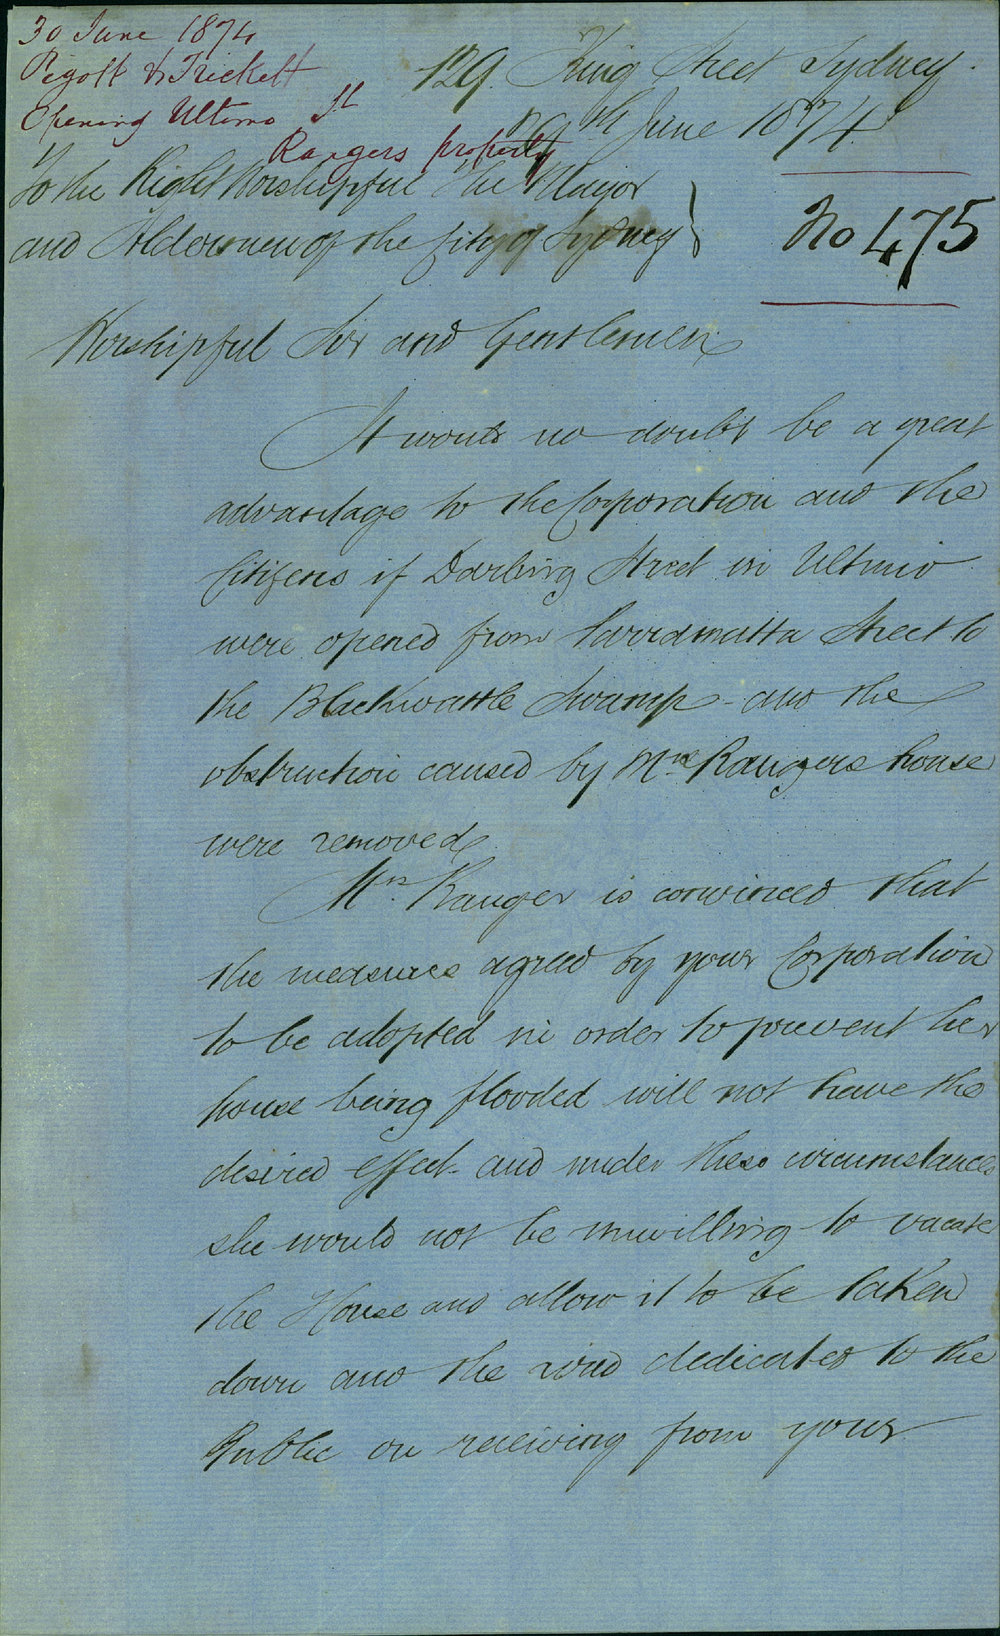 30 June 1874
Pigott & Trickett
Opening Ultimo St
Rangers property
129. King Street Sydney.
29th June 1874
No 475
To the Right Worshipful The Mayor
and Aldermen of the City of Sydney
Worshipful Sir and Gentlemen
It would no doubt be a great
advantage to the Corporation and the
Citizens if Darling Street in Ultimo
were opened from Parramatta Street to
the Blackwattle Swamp - and the
obstruction caused by Mrs Rangers house
were removed
Mrs Ranger is convinced that
the measures agreed by your Corporation
to be adopted in order to prevent her
house being flooded will not have the
desired effect - and under these circumstances
she would not be unwilling to vacate
the House and allow it to be taken
down and the road dedicated to the
Public on receiving from your